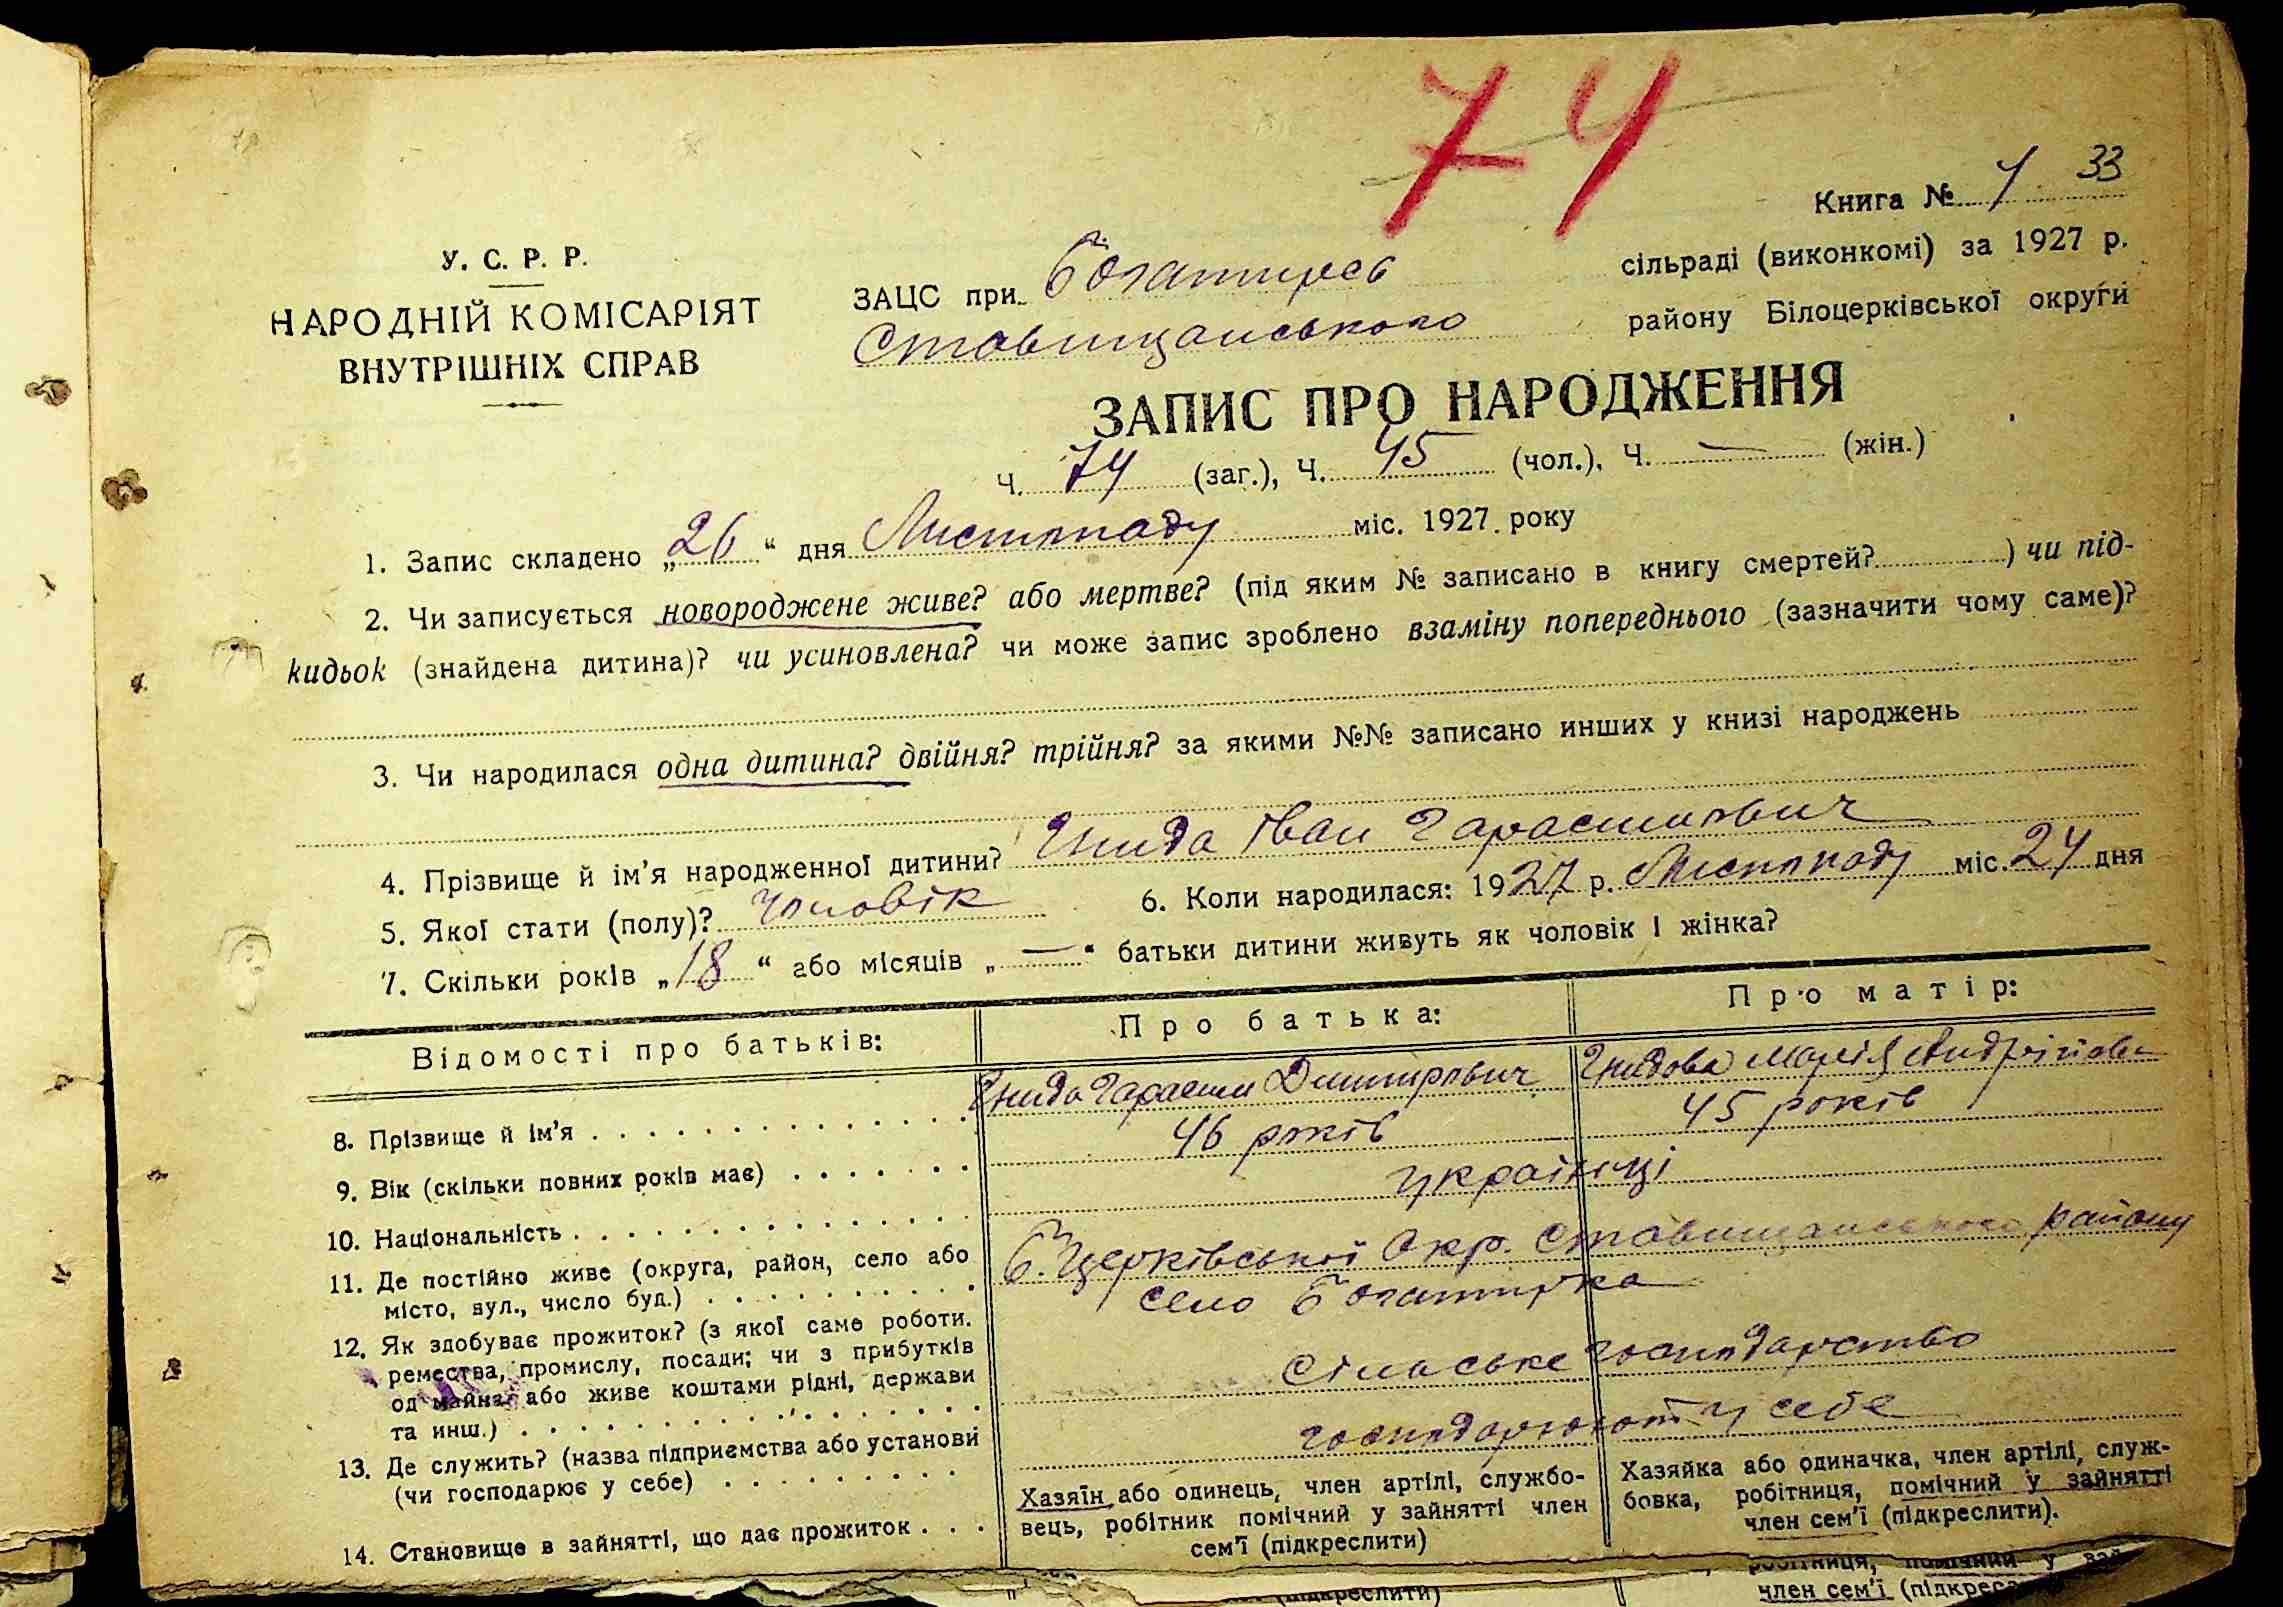 74
Книга № 4 33
У. С. Р. Р.
НАРОДНІЙ КОМІСАРІЯТ
ВНУТРІШНІХ СПРАВ
ЗАЦС при Богатирсь сільраді (виконкомі) за 1927 р.
Ставищанського району Білоцерківської округи
ЗАПИС ПРО НАРОДЖЕННЯ
Ч. 74 (заг.), Ч. 45 (чол.), Ч. — (жін.)
1. Запис складено „26“ дня Листопаду міс. 1927 року
2. Чи записується новороджене живе? або мертве? (під яким № записано в книгу смертей?) чи під-
кидьок (знайдена дитина)? чи усиновлена? чи може запис зроблено взаміну попереднього (зазначити чому саме)?
3. Чи народилася одна дитина? двійня? трійня? за якими №№ записано инших у книзі народжень
4. Прізвище й ім'я народженної дитини? Гнида Іван Гарасимович
5. Якої стати (полу)? чоловік 6. Коли народилася: 1927 р. Листопаду міс. 24 дня
7. Скільки років „18“ або місяців „—“ батьки дитини живуть як чоловік і жінка?
Відомості про батьків: Про батька: Про матір:
8. Прізвище й ім'я Гнида Гарасим Димитрович Гнидова Марія Андріївна
9. Вік (скільки повних років має) 46 років 45 років
10. Національність українці
11. Де постійно живе (округа, район, село або Б. Церківської Окр. Ставищанського району
місто, вул., число буд.) село Богатирка
12. Як здобуває прожиток? (з якої саме роботи. сільське господарство
ремества, промислу, посади; чи з прибутків
од майна? або живе коштами рідні, держави
та инш.)
13. Де служить? (назва підприємства або установи господарюють у себе
(чи господарює у себе)
14. Становище в зайнятті, що дає прожиток
Хазяїн або одинець, член артілі, службо-
вець, робітник помічний у зайнятті член
сем'ї (підкреслити)
Хазяйка або одиначка, член артілі, служ-
бовка, робітниця, помічний у зайнятті
член сем'ї (підкреслити).
робітниця, помічний у зай
(підкреслити)
член сем'ї